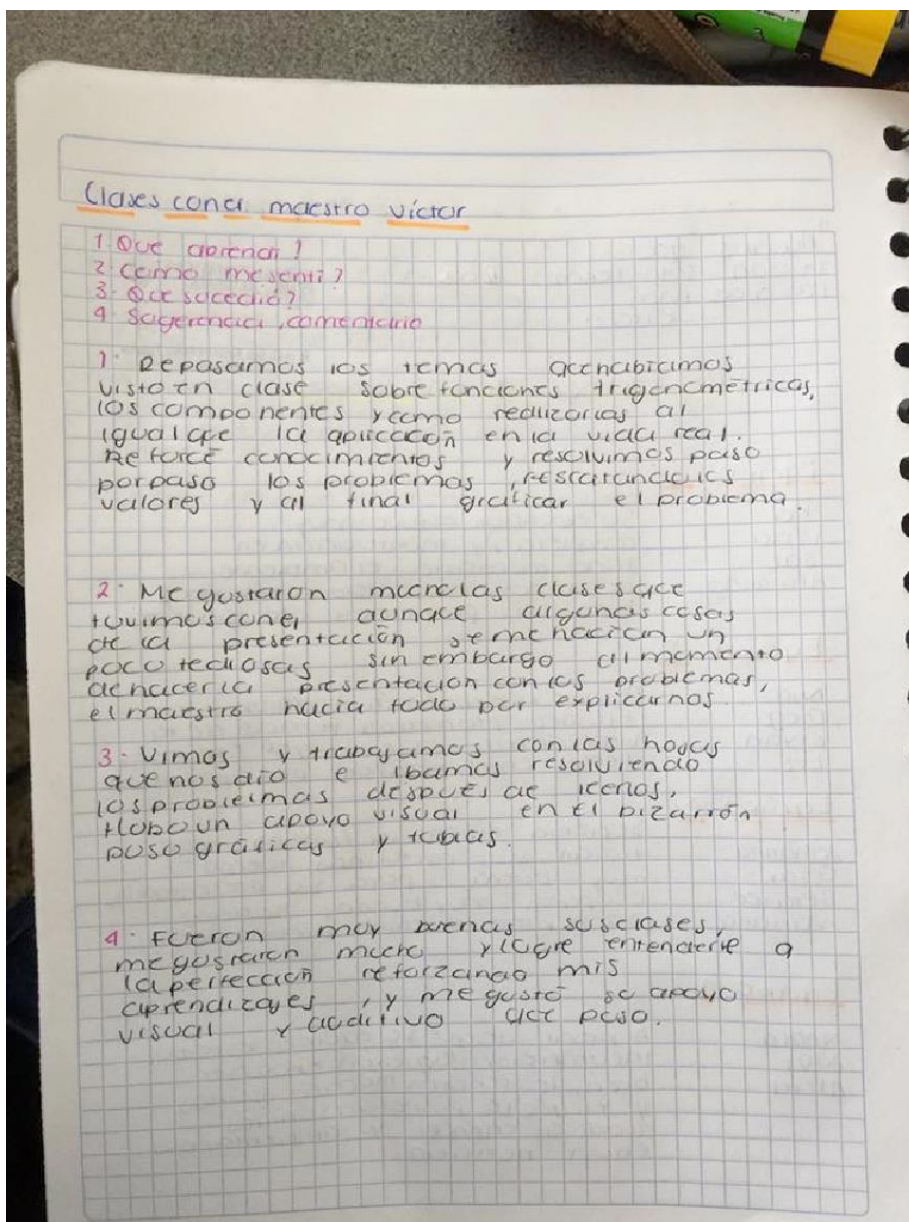 Clases con el maestro víctor
1. Que aprendi?
2. Como me senti?
3. Que sucedió?
4. Sugerencia, comentario
1. Repasamos los temas que habiamos
visto en clase sobre funciones trigonometricas,
los componentes y como realizarlas al
igual que la aplicación en la vida real.
Reforcé conocimientos y resolvimos paso
por paso los problemas, rescatando los
valores y al final graficar el problema.
2. Me gustaron mucho las clases que
tuvimos con el, aunque algunas cosas
de la presentación se me hacian un
poco tediosas sin embargo al momento
de hacer la presentacion con los problemas,
el maestro hacia todo por explicarnos.
3. Vimos y trabajamos con las hojas
que nos dio e ibamos resolviendo
los problemas después de leerlos,
Hubo un apoyo visual en el pizarrón
puso gráficas y tablas.
4. Fueron muy buenas sus clases,
me gustaron mucho y logre entenderle a
la perfección reforzando mis
aprendizajes, y me gustó su apoyo
visual y auditivo que puso.